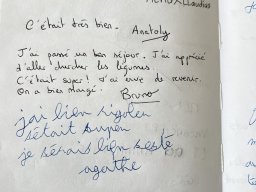 C'était très bien. Anatoly
J'ai passé un bon séjour. J'ai apprécié
d'aller chercher les légumes.
C'était super! J'ai envie de revenir.
On a bien mangé. Bruno
jai bien rigoler
sétait super
je serais bien resté
agathe